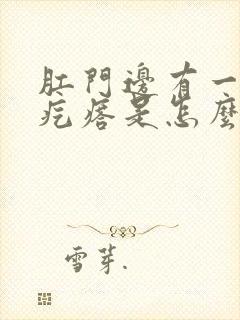 肛門邊有一
疙瘩是怎麼
雪芽.